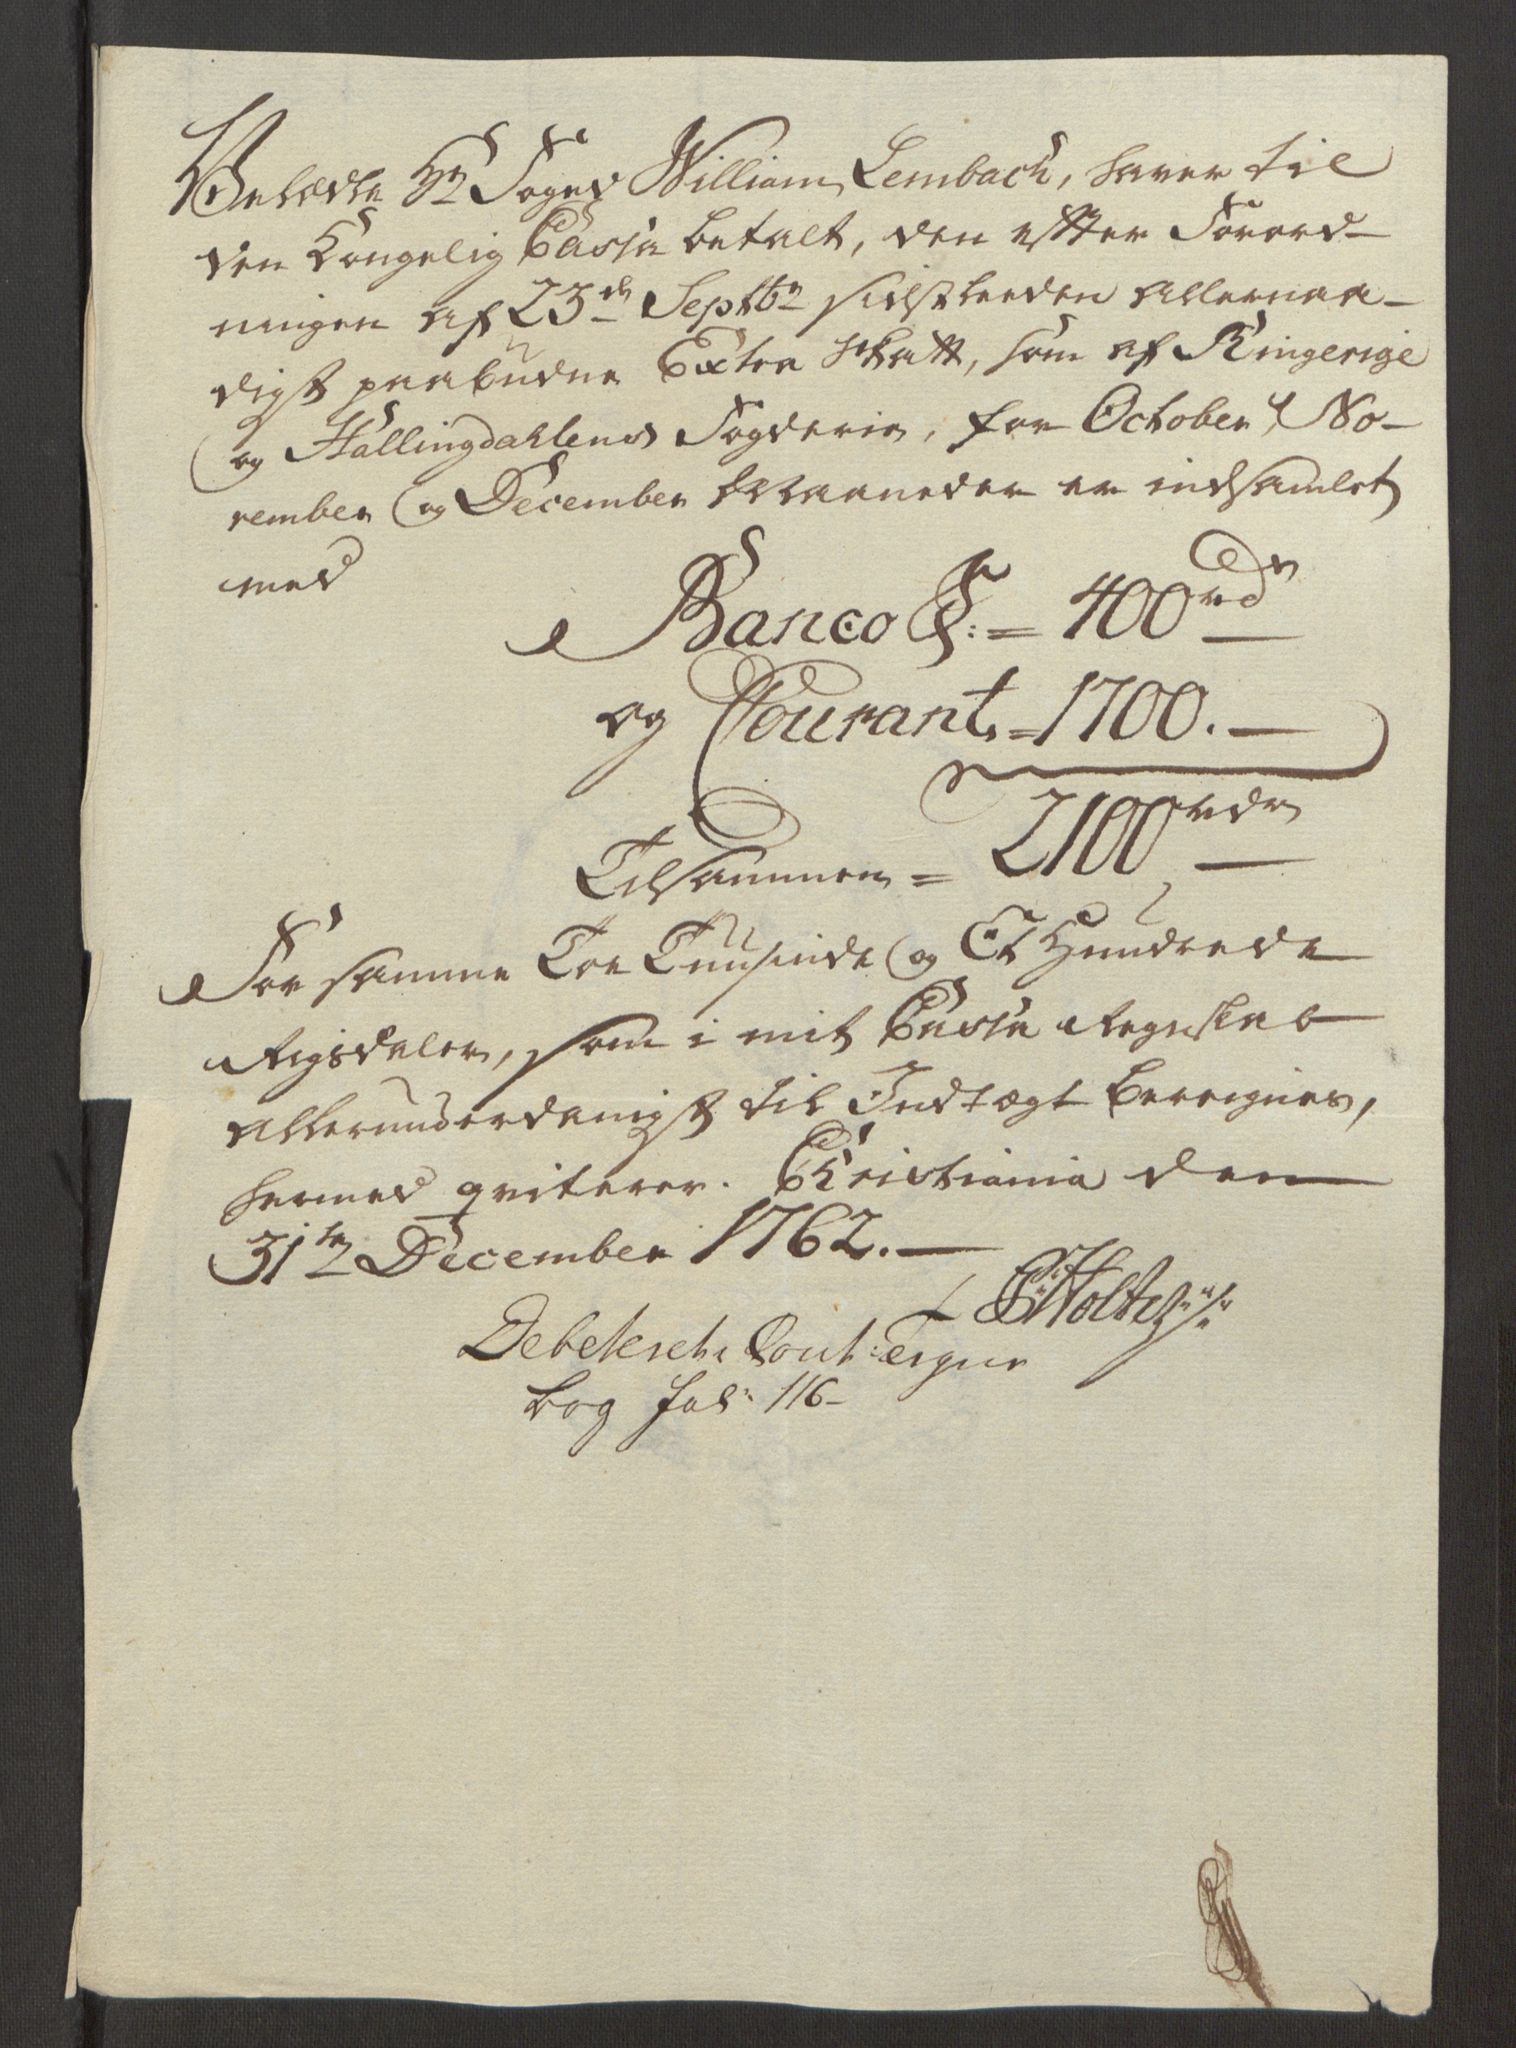 Velædle Hr Foged William Lembach, haver til
den Kongelig Cassa betalt, den efter Forord-
ningen af 23de Septbr sidstleeden allernaa-
digst paabudne Extra Skatt, som af Ringerige
og Hallingdahlens Fogderie, for October, No-
vember og December Maaneder er indsamlet
med
Banco S: = 400 rdr
og Courant = 1700. —
Tilsammen = 2100 rdr —
For samme Toe Tuusinde og Et Hundrede
Rigsdaler, som i mit Cassa Regnskab
allerunderdanigst til Indtægt beregnes,
hermed qviterer. Christiania den
31te December 1762. —
Holte
Debeteret i Cont: Tegne
bog fol: 116-